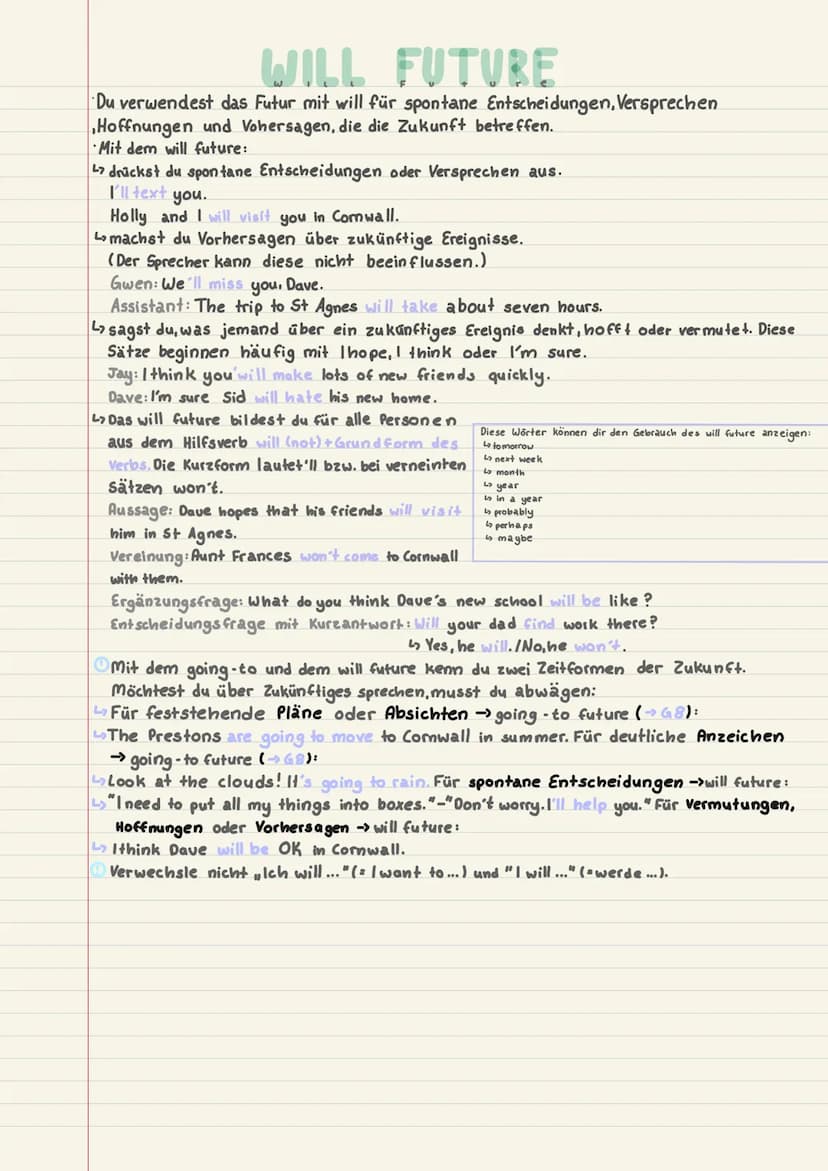 WILL FUTURE
Will Future
·Du verwendest das Futur mit will für spontane Entscheidungen, Versprechen
,Hoffnungen und Vohersagen, die die Zukunft betreffen.
·Mit dem will future:
↳ drückst du spontane Entscheidungen oder Versprechen aus.
I'll text you.
Holly and I will visit you in Cornwall.
↳ machst du Vorhersagen über zukünftige Ereignisse.
(Der Sprecher kann diese nicht beeinflussen.)
Gwen: We'll miss you, Dave.
Assistant: The trip to St Agnes will take about seven hours.
↳ sagst du, was jemand über ein zukünftiges Ereignis denkt, hofft oder vermutet. Diese
Sätze beginnen häufig mit I hope, I think oder I'm sure.
Jay: I think you'will make lots of new friends quickly.
Dave: I'm sure Sid will hate his new home.
↳ Das will future bildest du für alle Personen
aus dem Hilfsverb will (not) + Grundform des
Verbs. Die Kurzform lautet 'll bzw. bei verneinten
Sätzen won't.
Aussage: Dave hopes that his friends will visit
him in St Agnes.
Vereinung: Aunt Frances won't come to Cornwall
with them.
Diese Wörter können dir den Gebrauch des will future anzeigen:
↳ tomorrow
↳ next week
↳ month
↳ year
↳ in a year
↳ probably
↳ perhaps
↳ maybe
Ergänzungsfrage: What do you think Dave's new school will be like?
Entscheidungsfrage mit Kurzantwort: Will your dad find work there?
↳ Yes, he will. / No, he won't.
! Mit dem going-to und dem will future kenn du zwei Zeitformen der Zukunft.
Möchtest du über Zukünftiges sprechen, musst du abwägen:
↳ Für feststehende Pläne oder Absichten → going-to future (→ G8):
↳ The Prestons are going to move to Cornwall in summer. Für deutliche Anzeichen
→ going-to future (→ G8):
↳ Look at the clouds! It's going to rain. Für spontane Entscheidungen → will future:
↳ "I need to put all my things into boxes." – "Don't worry. I'll help you." Für Vermutungen,
Hoffnungen oder Vorhersagen → will future:
↳ I think Dave will be OK in Cornwall.
! Verwechsle nicht „Ich will ..." (= I want to ...) und "I will ..." (= werde ...).